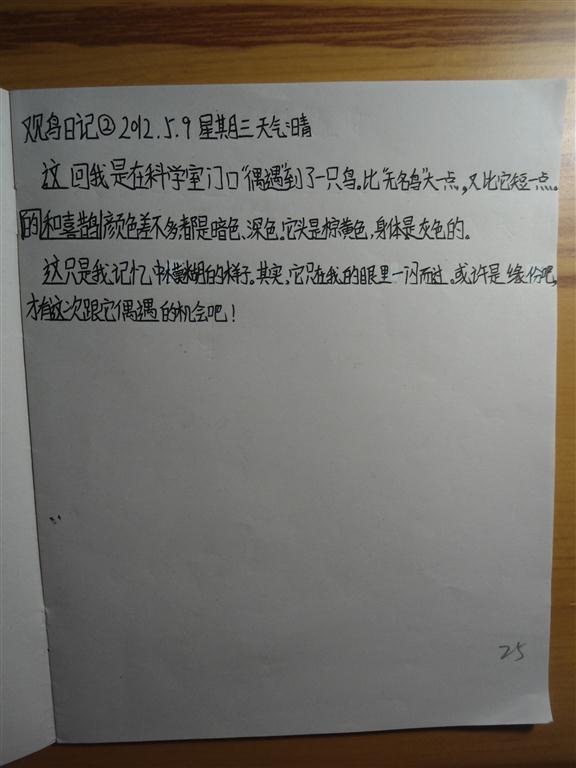 观鸟日记② 2012.5.9 星期三 天气:晴
这回我是在科学室门口"偶遇"到了一只鸟。比"无名鸟"大一点,又比它短一点。
的和喜鹊颜色差不多都是暗色、深色。它头是棕黄色,身体是灰色的。
这只是我记忆中模糊的样子。其实,它只在我的眼里一闪而过,或许是缘份吧,
才有这次跟它偶遇的机会吧!
25